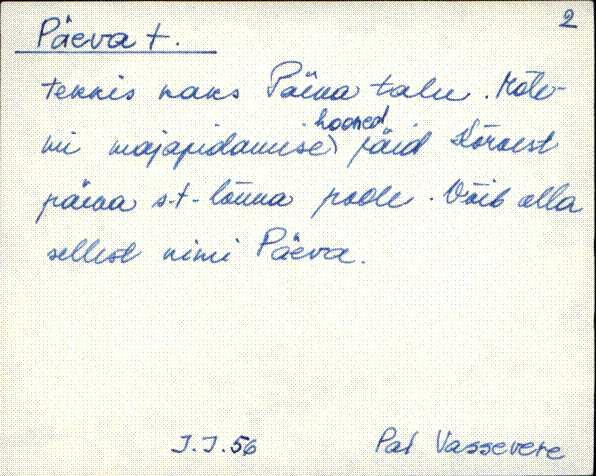 2
Päeva t.
tekkis kaks Päeva talu. Mõle-
mi majapidamise hooned jäid Kõrvest
päeva s.-t. lõuna poole. Võib olla
sellest nimi Päeva.
J.J.56 Pal Vassevere